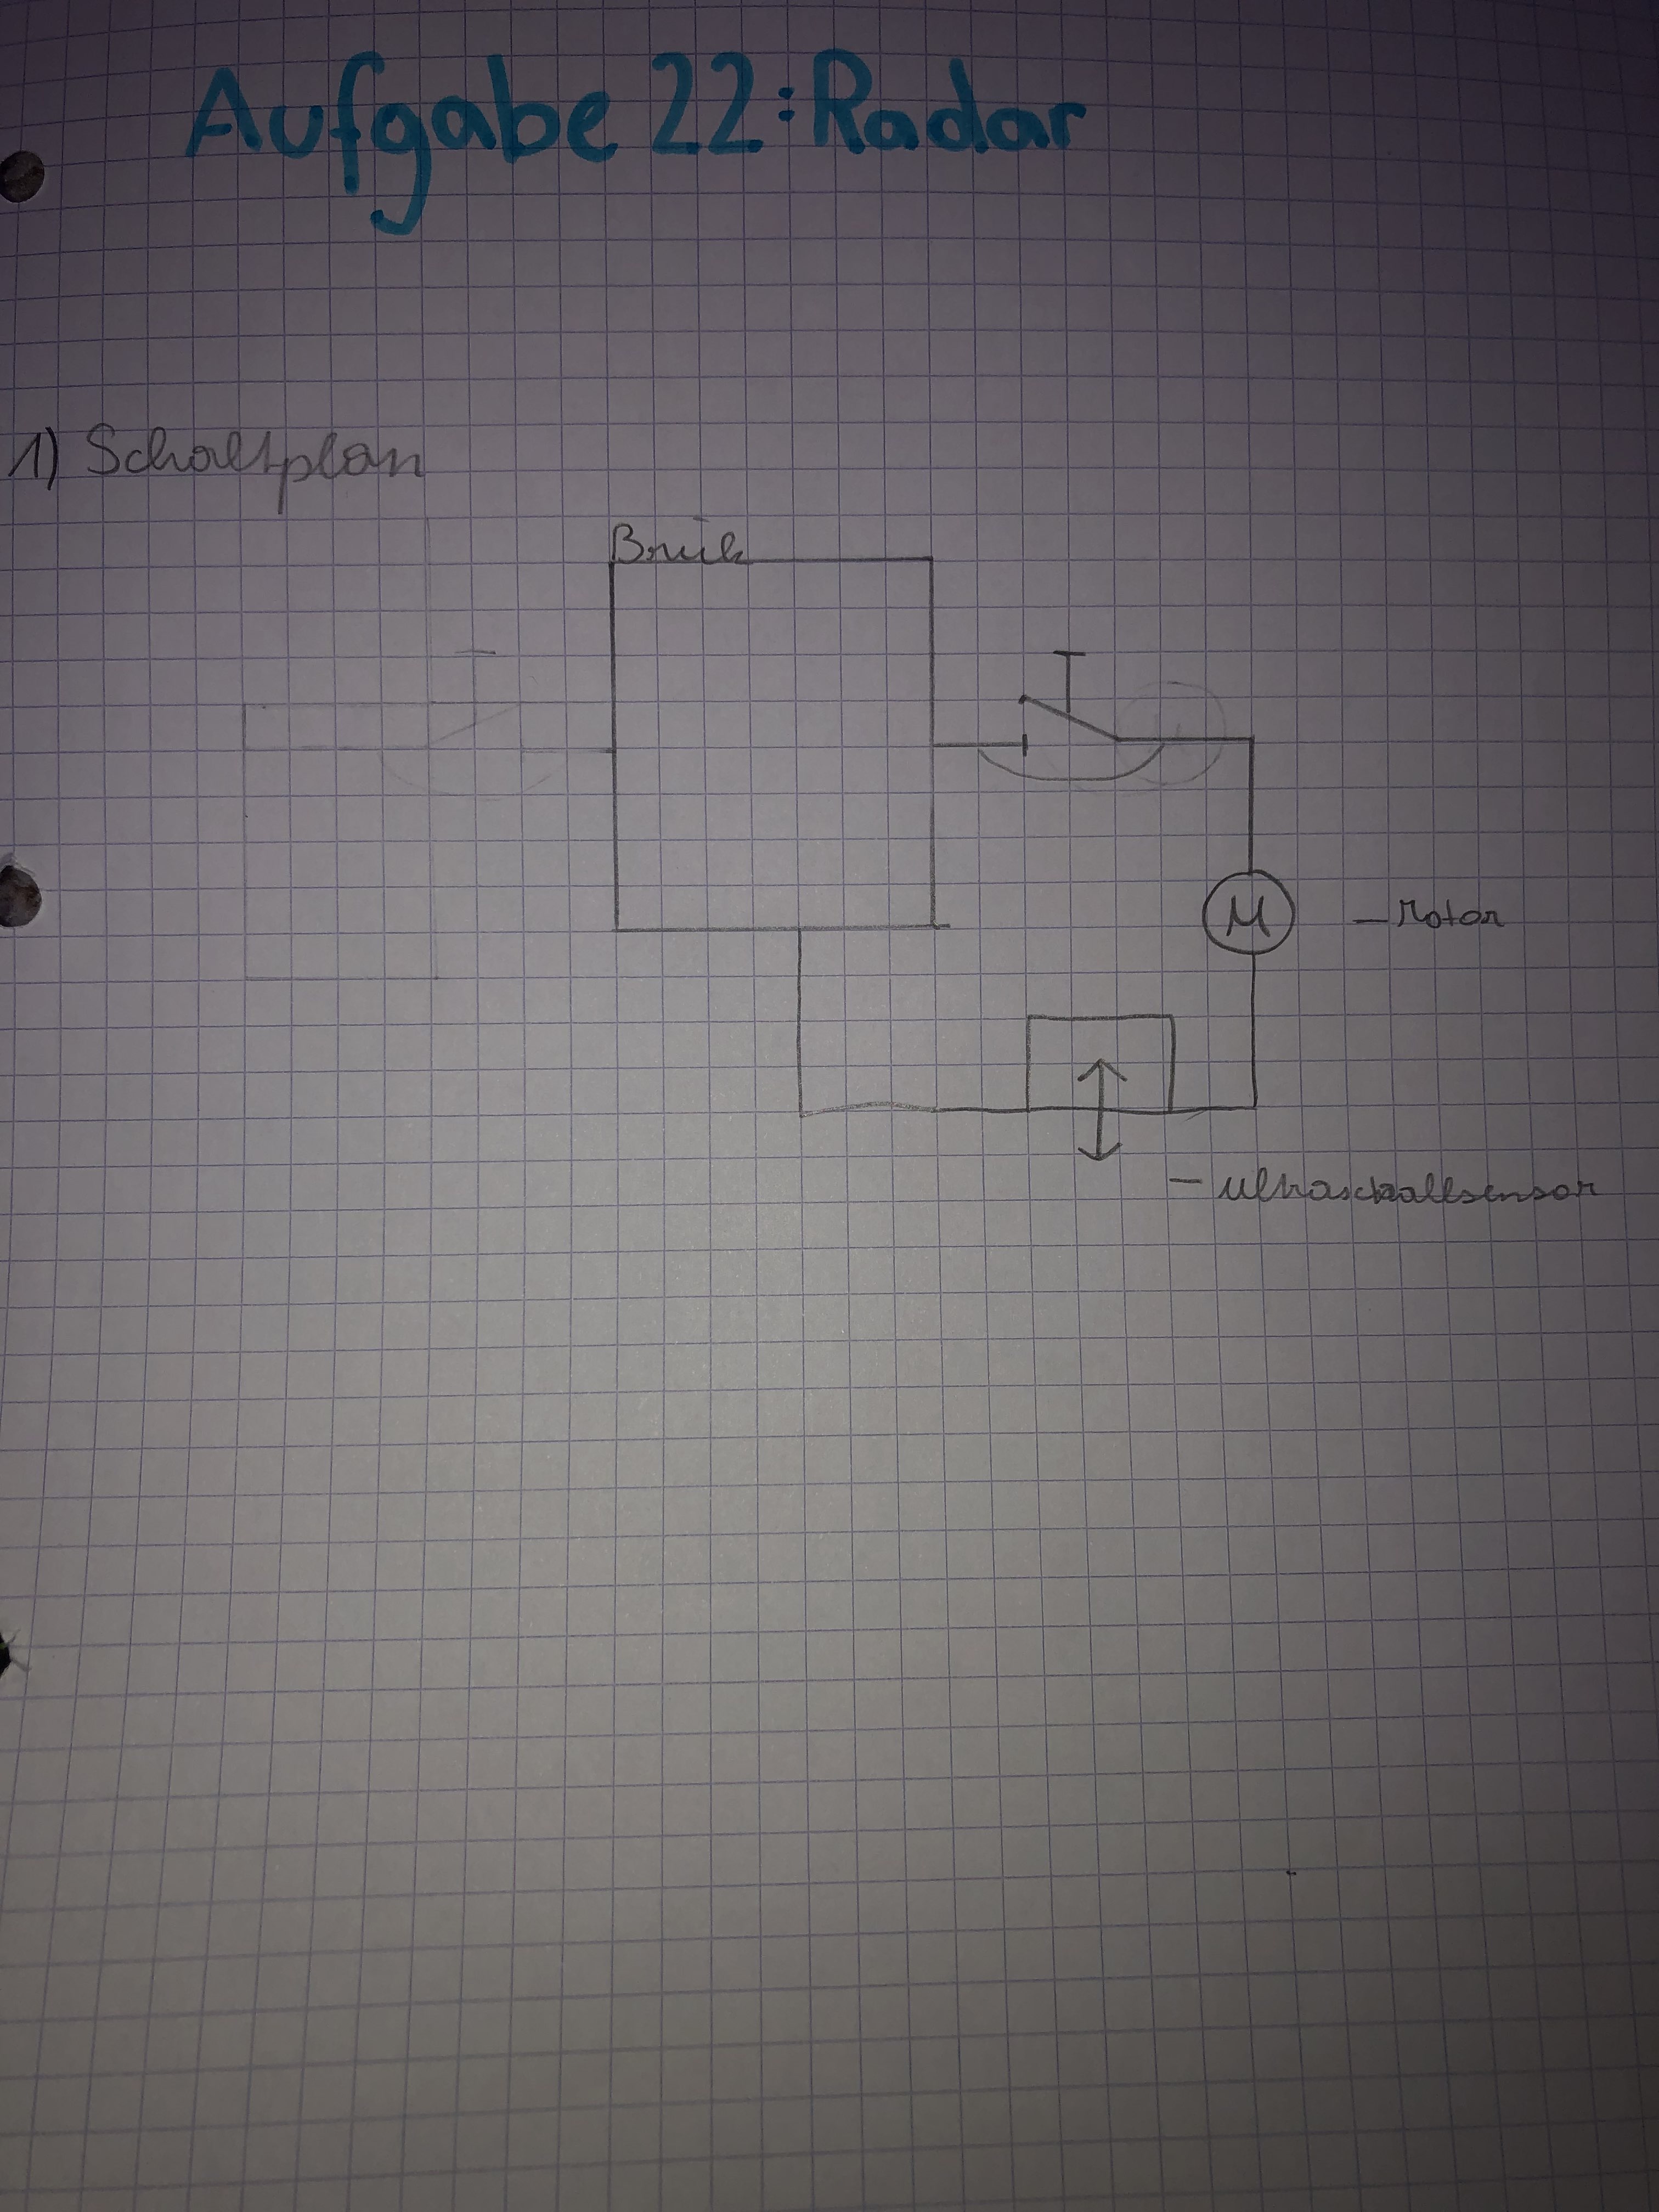 Aufgabe 22: Radar
1) Schaltplan
Brick
M
- Motor
- Ultraschallsensor